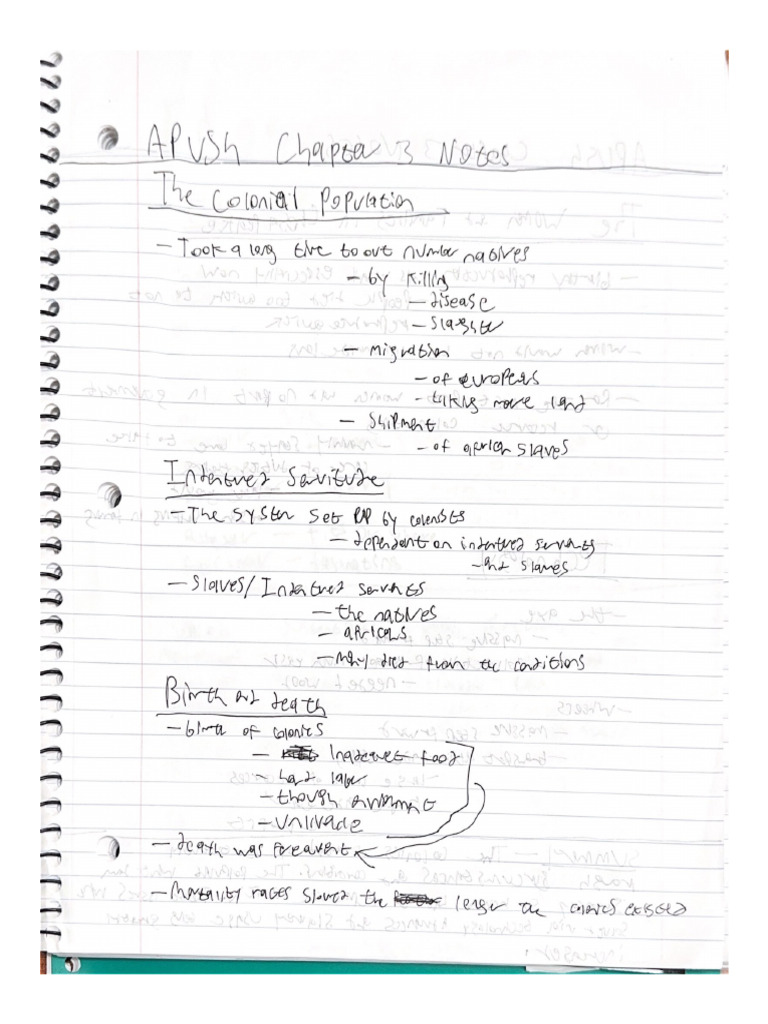 APUSH Chapter 3 Notes
The Colonial Population
- Took a long time to out number natives
- by killing
- disease
- slaughter
- migration
- of europeans
- taking more land
- Shipment
- of african slaves
Indentured Servitude
- The system set up by colonists
- dependent on indentured servents
- and slaves
- Slaves/Indentured servents
- the natives
- africans
- many died from the conditions
Birth and death
- birth of colonies
- Inadequet food
- hard labor
- though
- death was frequent
- Mortality rates slowed the longer the colonies existed